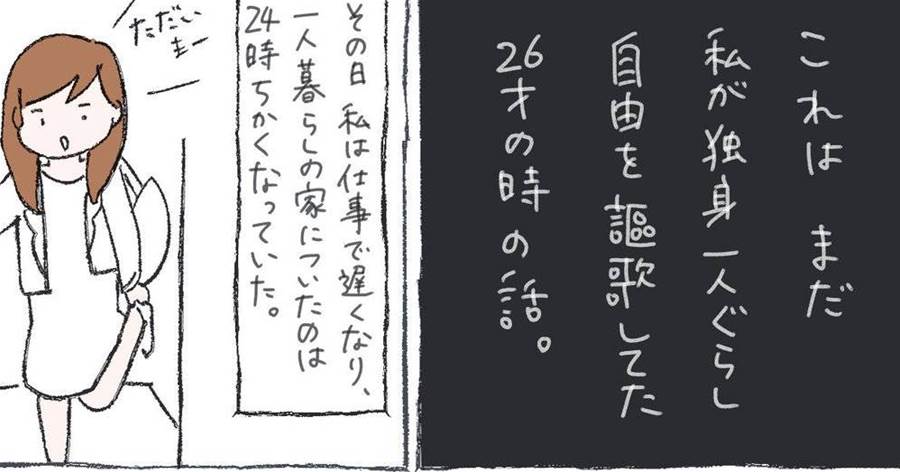 これは まだ
私が独身一人ぐらし
自由を謳歌してた
26才の時の話。
その日 私は仕事で遅くなり、
一人暮らしの家についたのは
24時ちかくなっていた。
ただい
まー